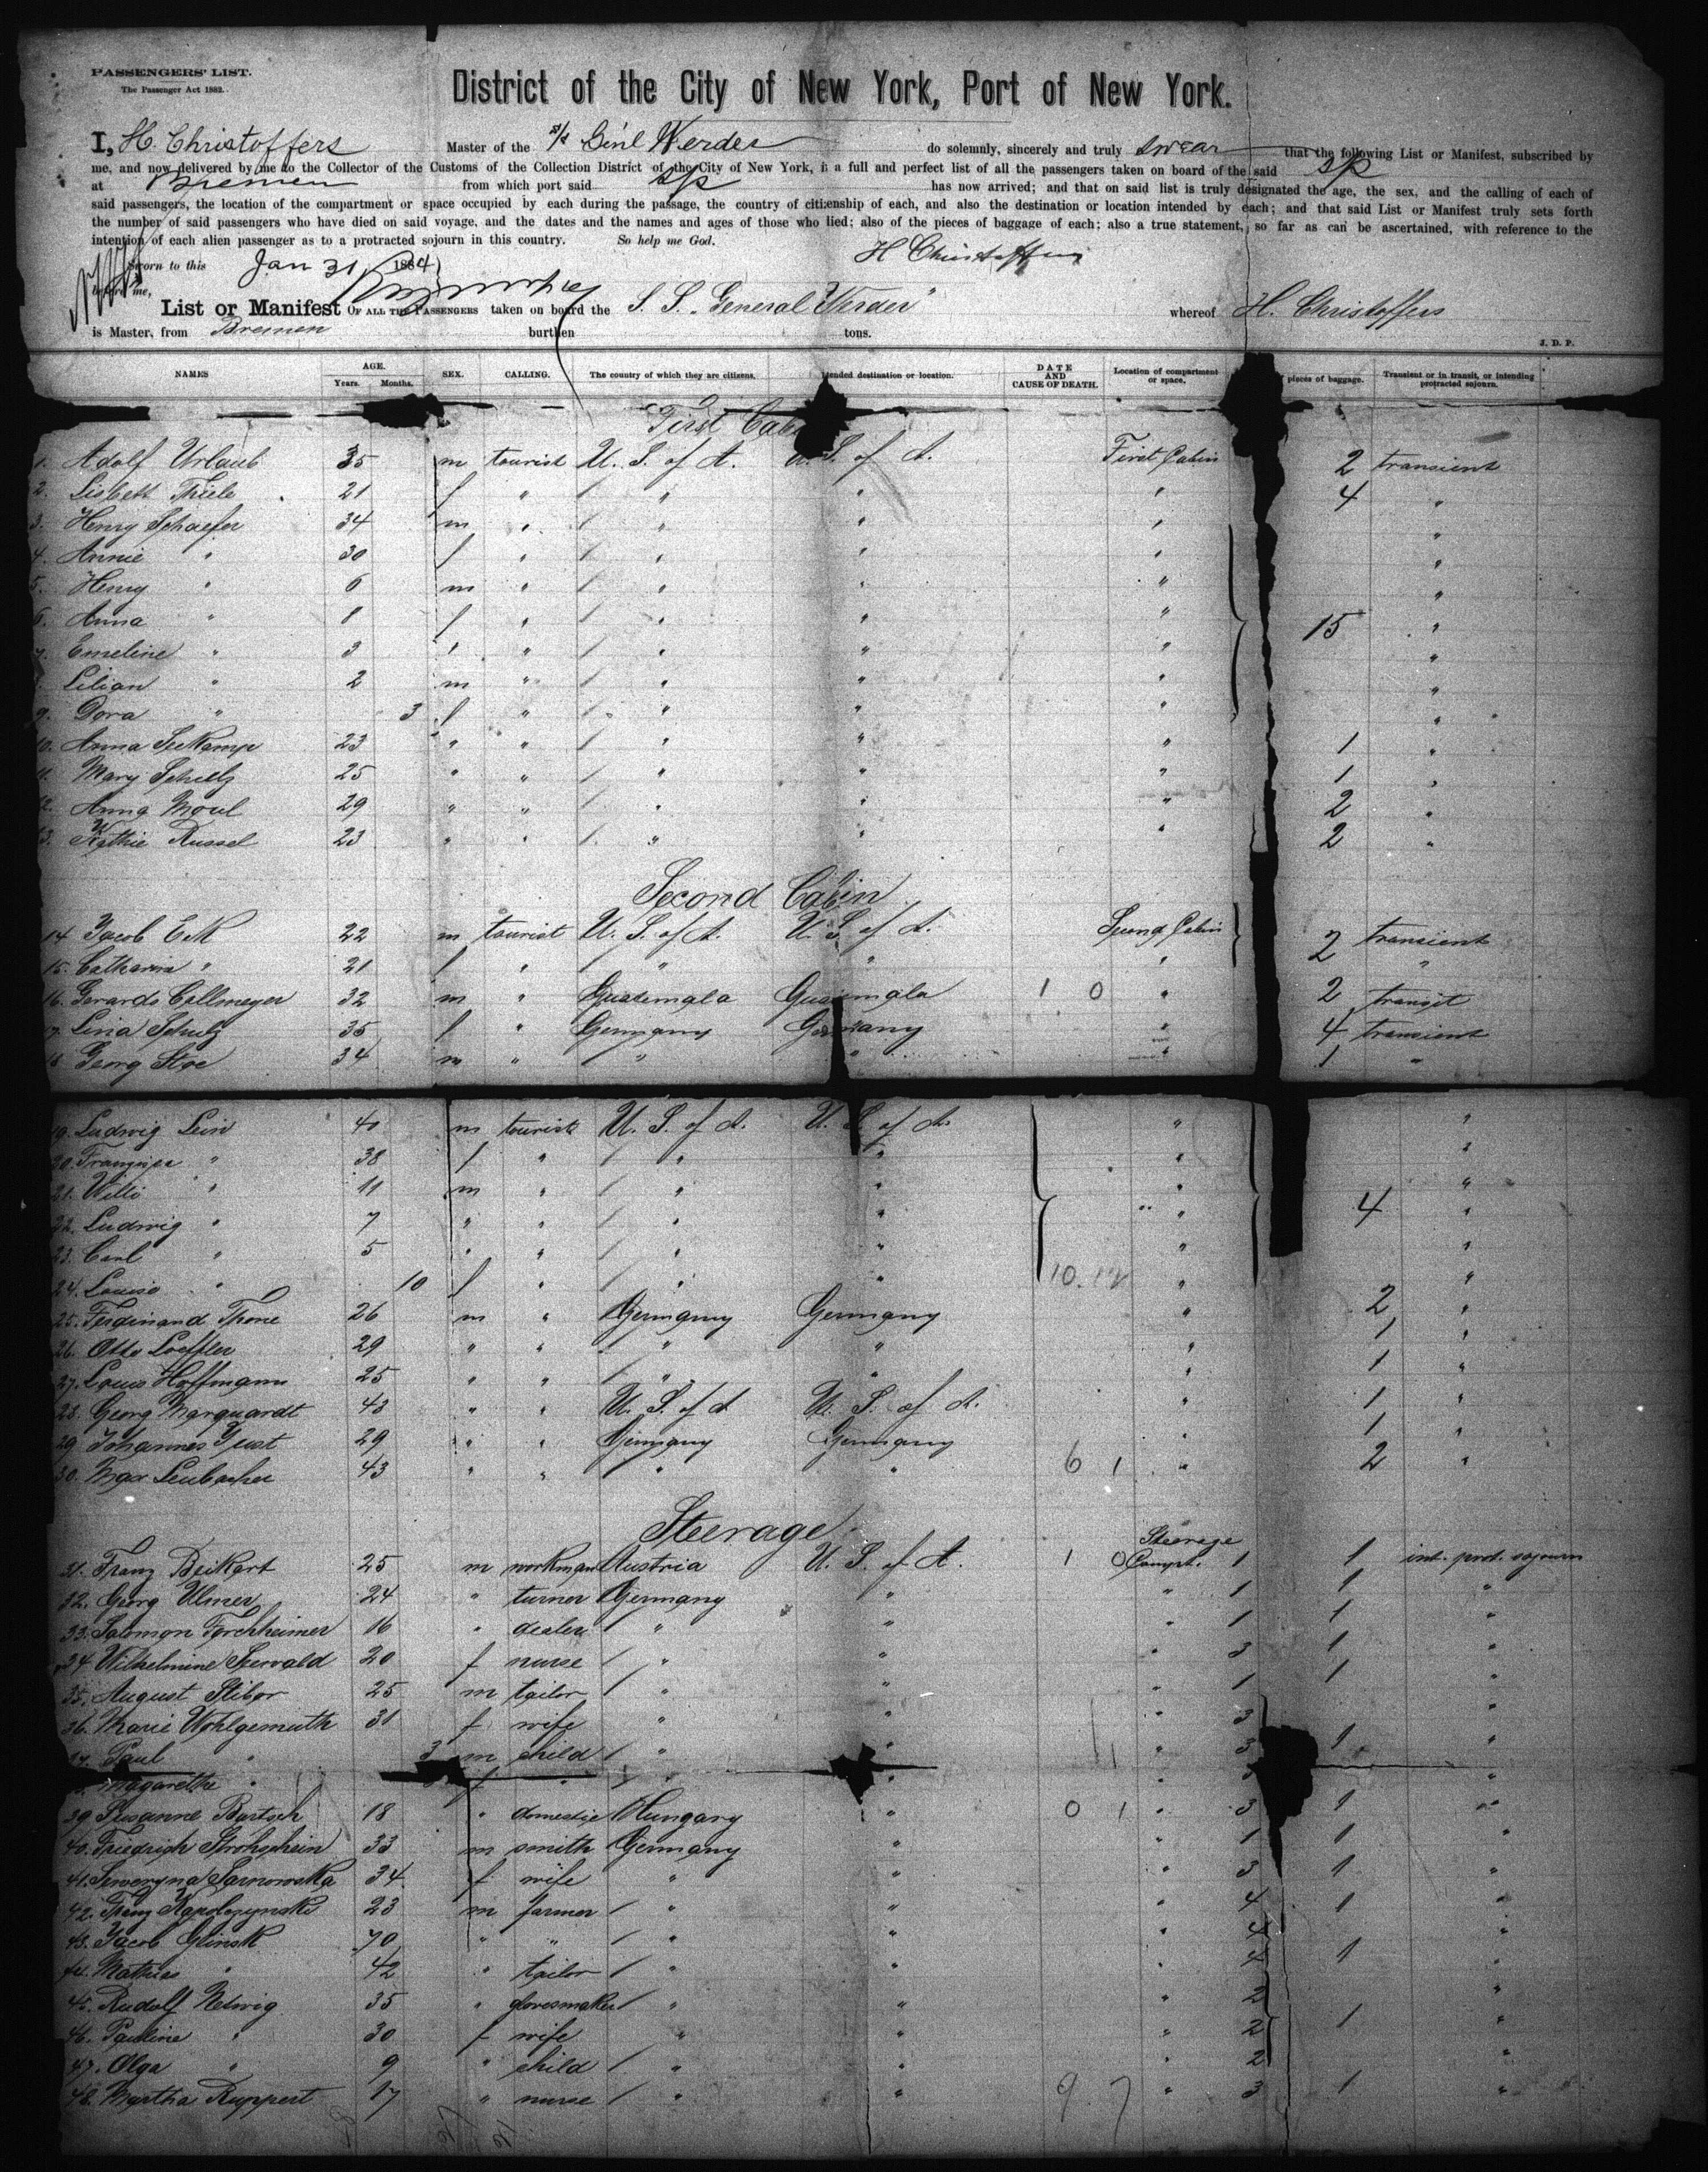 PASSENGERS' LIST.
The Passenger Act 1882.
District of the City of New York, Port of New York.
I, H. Christoffers Master of the s/s Gen'l Werder do solemnly, sincerely and truly swear that the following List or Manifest, subscribed by
me, and now delivered by me to the Collector of the Customs of the Collection District of the City of New York, is a full and perfect list of all the passengers taken on board of the said sp
at Bremen from which port said sp has now arrived; and that on said list is truly designated the age, the sex, and the calling of each of
said passengers, the location of the compartment or space occupied by each during the passage, the country of citizenship of each, and also the destination or location intended by each; and that said List or Manifest truly sets forth
the number of said passengers who have died on said voyage, and the dates and the names and ages of those who died; also of the pieces of baggage of each; also a true statement, so far as can be ascertained, with reference to the
intention of each alien passenger as to a protracted sojourn in this country. So help me God.
H Christoffers
Sworn to this Jan 31 1884
before me,
List or Manifest OF ALL THE PASSENGERS taken on board the S. S. "General Werder" whereof H. Christoffers
is Master, from Bremen burthen tons.
J. D. P.
NAMES AGE. Years. Months. SEX. CALLING. The country of which they are citizens. Intended destination or location. DATE AND CAUSE OF DEATH. Location of compartment or space. pieces of baggage. Transient or in transit, or intending protracted sojourn.
First Cabin
1. Adolf Urlaub 35 m tourist U. S. of A. U. S. of A. First Cabin 2 transient
2. Lisbeth Thiele 21 f " / " " " 4 "
3. Henry Schaefer 34 m " / " " " "
4. Annie " 30 f " / " " " "
5. Henry " 6 m " / " " " "
6. Anna " 8 f " / " " " 15 "
7. Emeline " 3 " " / " " " "
8. Lilian " 2 m " / " " " "
9. Dora " 3 f " / " " " "
10. Anna Seekamp 23 " " / " " " 1 "
11. Mary Schulz 25 " " / " " " 1 "
12. Anna Moul 29 " " / " " " 2 "
13. Kathie Russel 23 " " / " " " 2 "
Second Cabin
14 Jacob Eck 22 m tourist U. S. of A. U. S. of A. Second Cabin 2 transient
15. Catharin " 21 f " / " " " "
16. Gerardo Callmeyer 32 m " Guatemala Guatemala 1 0 " 2 transit
17. Lina Schulz 35 f " Germany Germany " 4 transient
18 Georg Stoe 34 m " / " " " 1 "
19. Ludwig Lein 40 m tourist U. S. of A. U. S. of A. " "
20. " 38 f " / " " " "
21. Willi " 11 m " / " " " "
22. Ludwig " 7 " " / " " " 4 "
23. Carl " 5 " " / " " " "
24. Louise " 10 f " / " " 10. " "
25. Ferdinand Thone 26 m " Germany Germany " 2 "
26. Otto Loeffler 29 " " / " " " 1 "
27. Louis Hoffmann 25 " " / " " " 1 "
28. Georg Marquardt 43 " " U. S. of A U. S. of A. " 1 "
29 Johannes Just 29 " " Germany Germany " 1 "
30. Max Leubacher 43 " " " " 6 1 " 2 "
Steerage
31. Franz Beikert 25 m workman Austria U. S. of A. 1 0 Steerage Compt. 1 1 int. prot. sojourn
32. Georg Ulmer 24 " turner Germany " " 1 1 "
33. Salomon Forchheimer 16 " dealer / " " " 1 1 "
34 Wilhelmine Seewald 20 f nurse / " " " 3 1 "
35. August Stibor 25 m tailor / " " " 1 1 "
36. Marie Wohlgemuth 31 f wife " " " 3 "
37. Paul " 3 m child / " " " 3 1 "
38. Magarethe " f " / " " " 3 "
39 Susanne Bartsch 18 " domestic Hungary " 0 1 " 3 1 "
40. Friedrich Strohschein 33 m smith Germany " " 1 1 "
41. Seweryna Sarnowska 34 f wife " " " 3 1 "
42. Franz 23 m farmer / " " " 4 1 "
43. Jacob Glinsk 70 " " / " " " 4 "
44. Mathias " 42 " tailor / " " " 4 1 "
45. Rudolf Nelwig 35 " glovesmaker / " " " 2 "
46. Pauline " 30 f wife " " " 2 1 "
47. Olga " 9 " child / " " " 2 "
48. Martha Ruppert 17 " nurse / " " 9 7 " 3 1 "